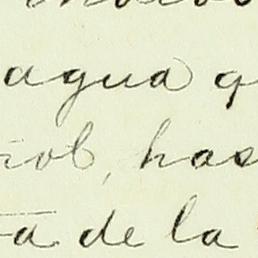 agua q
rob, has
a de la